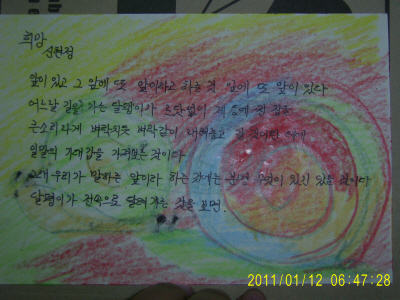 희망
신천정
앞이 있고 그 앞에 또 앞이라고 하는 것 앞에 또 앞이 있다
어느날 길을 가는 달팽이가 느닷없이 제 등에 진 집을
큰소리나게 벼락치듯 벼락같이 내려놓고 갈 것이란 데에
일말의 기대감을 가져보는 것이다
그래 우리가 말하는 앞이라 하는 것에는 분명 무엇이 있긴 있을 것이다
달팽이가 전속으로 달려가는 것을 보면.
2011/01/12 06:47:28